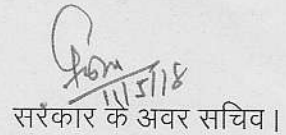 11/5/18
सरकार के अवर सचिव।